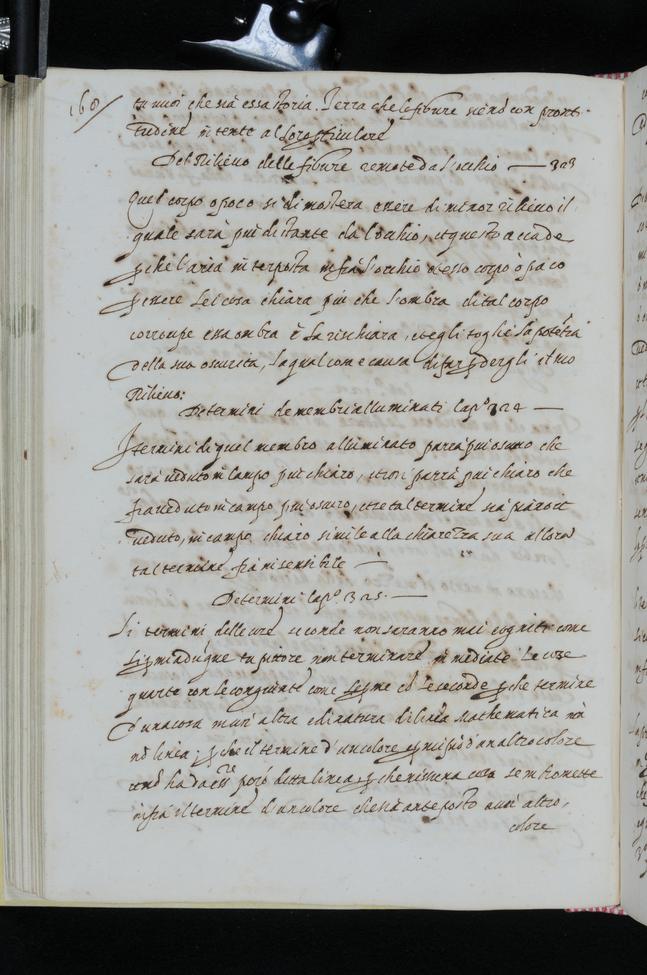 160
tu vuoi che sia essa storia. Terza che le figure sieno con pronti
tudine intente al loro particulare
Del Rilievo delle figure remote da l'occhio — 323
Quel corpo opaco si dimostera essere di minor rilievo il
quale sarà piu distante da l'occhio, et questo accade
perche l'aria interposta infrà l'occhio et esso corpo opaco
per essere lei cosa chiara piu che l'ombra di tal corpo
corroupe essa ombra e la rischiara, et egli toglie la potētia
della sua oscurita, la qual cosa e causa di farli perdergli il suo
Rilievo:
De termini de membri alluminati Capº 324 —
I termini di quel membro alluminato parrà piu oscuro che
sarà veduto in campo piu chiaro, et così parrà piu chiaro che
fia veduto in campo piu oscuro, et se tal termine sia piano et
veduto, in campo chiaro simile alla chiarezza sua allora
tal termine fia insensibile —
De termini Capº 325. —
Li termini delle cose seconde non saranno mai cogniti come
li primi adunque tu pittore non terminare inmediate le cose
quarte con le congiunte come le prime cō le seconde perche termine
d'una cosa in un' altra e di natura di linea Mathematica mà
nō linea; perche il termine d'un colore e principio d'un altro colore
et nō ha da essere però detta linea, perche nissuna cosa se intromette
infrà il termine d'un colore che sia anteposto a un' altro,
colore